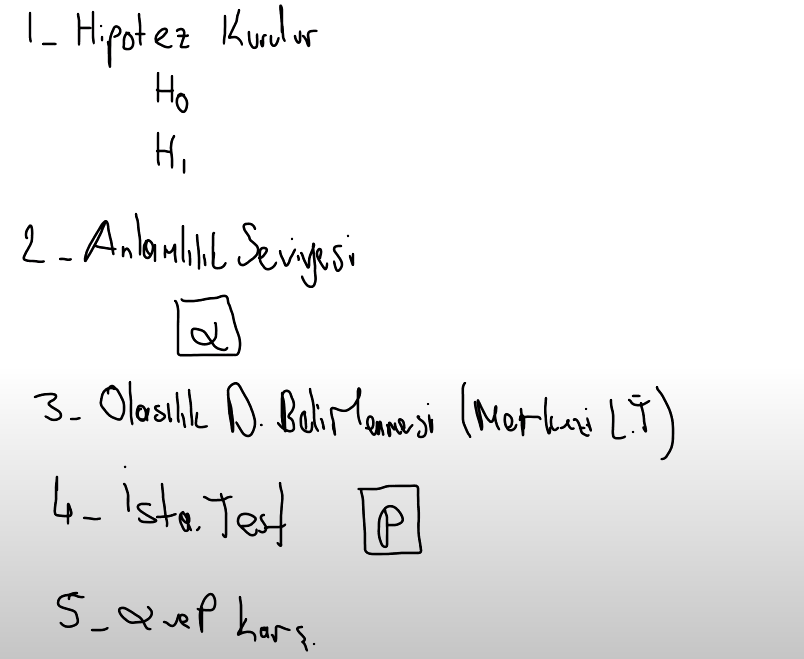 1_ Hipotez Kurulur
H₀
H₁
2_ Anlamlılık Seviyesi
α
3_ Olasılık D. Belirlenmesi (Merkezi L.T)
4_ İsta. Test P
5_ α ve P karş.